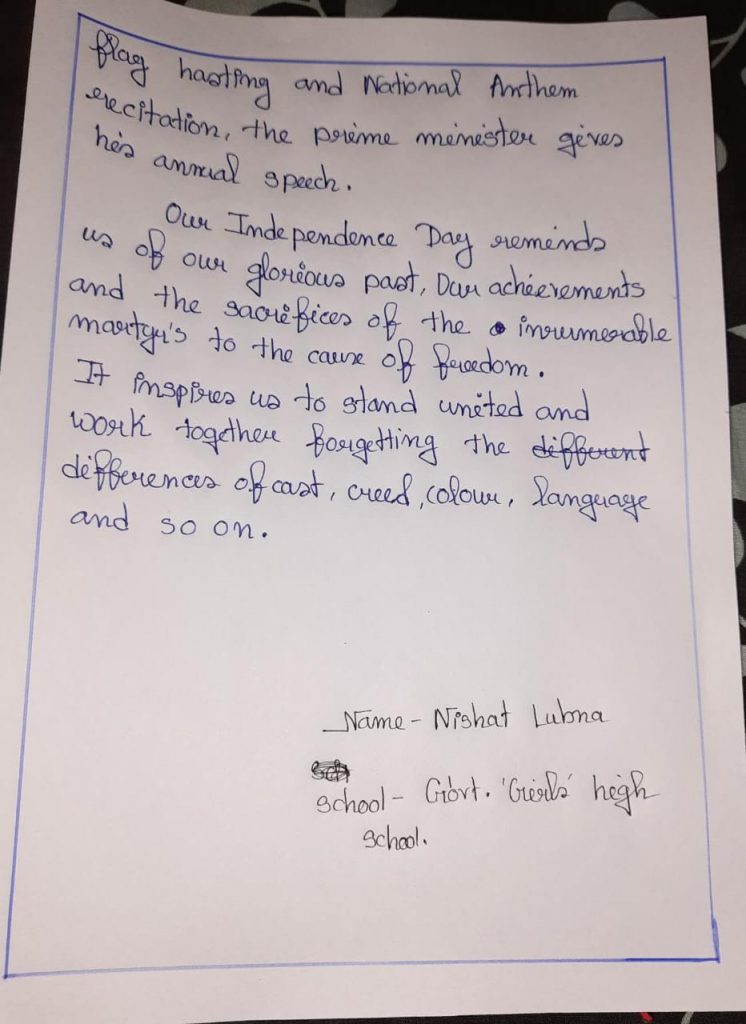 flag hasting and National Anthem
recitation, the prime minister gives
his annual speech.
Our Independence Day reminds
us of our glorious past, Our achievements
and the sacrifices of the innumerable
martyr's to the cause of freedom.
It inspires us to stand united and
work together forgetting the different
differences of cast, creed, colour, language
and so on.
Name - Nishat Lubna
school - Govt. 'Girls' high
school.